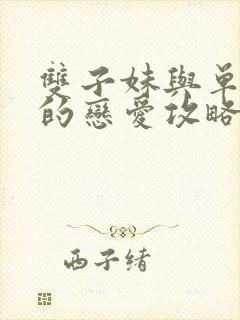 雙子妹與單
的戀愛攻略
西子緒